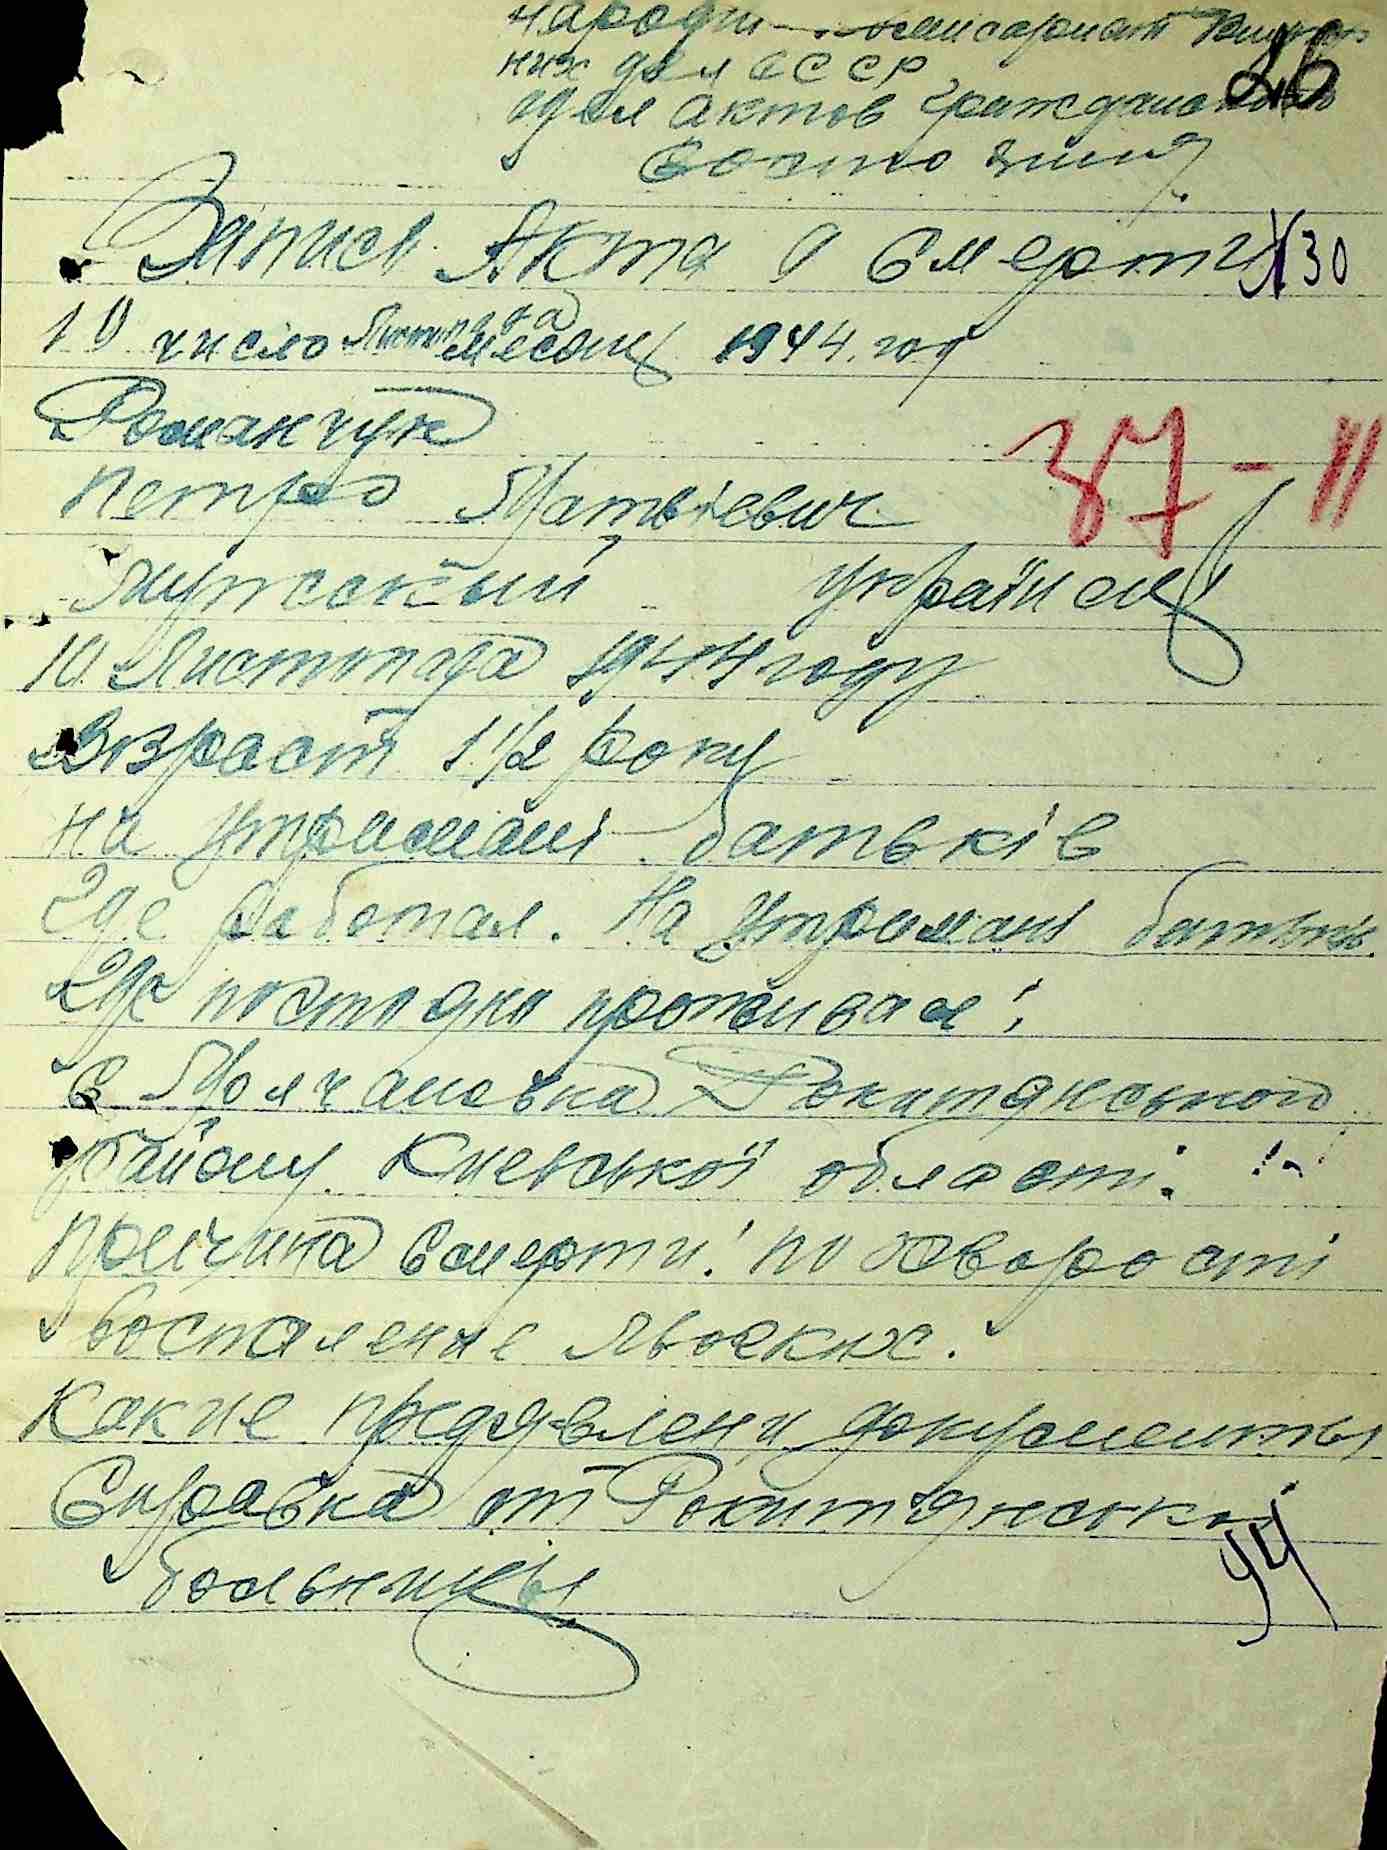 Народн комисариат внутрен
них дел СССР 26
дел актов гражданского
Состояния
Запись Акта о Смерти №30
10 число Листопада месяц 1944 год
Романчук
37 - 11
Петро Матвіевич
Мужской українец
10 Листопада 1944 году
Возраст 1 1/2 року
на утримані батьків
Где работал. На утримані батьків
Где постоянно проживал:
С Молчановка Рокитянського
району Киевської області.
Причина Смерти: по хворості
воспаление льогких.
Какие предявлени документы
Справка от Рокитянської
больницы
94